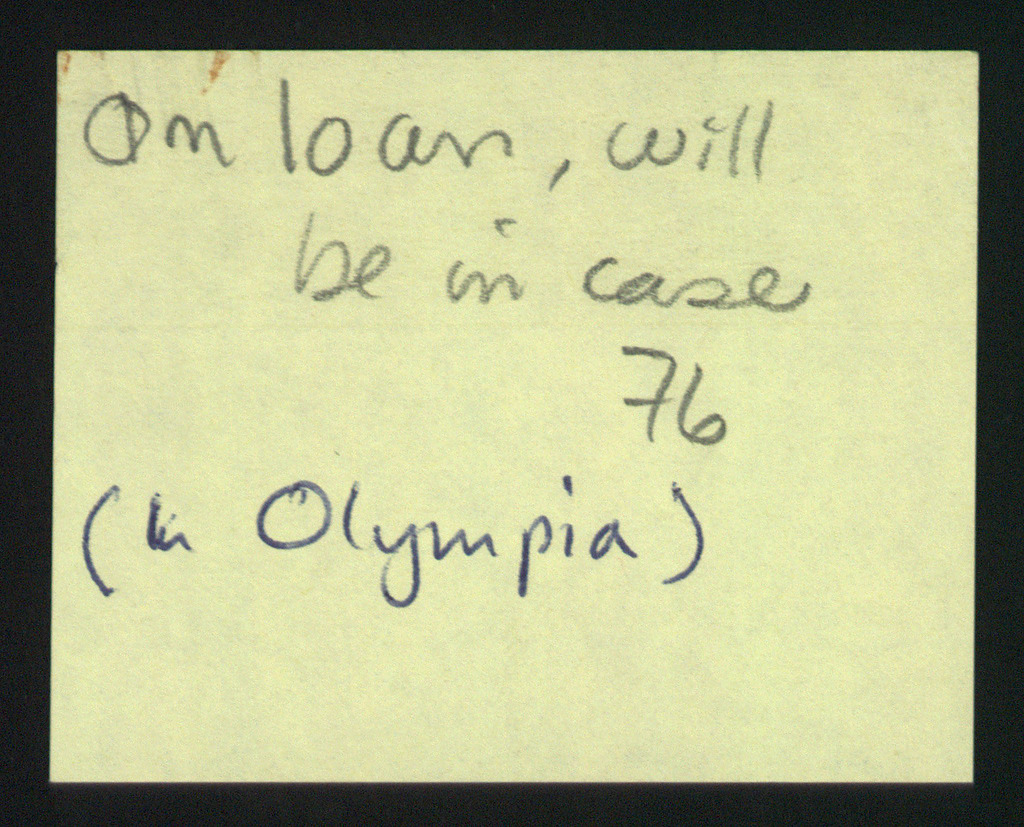 On loan, will
be in case
76
(in Olympia)